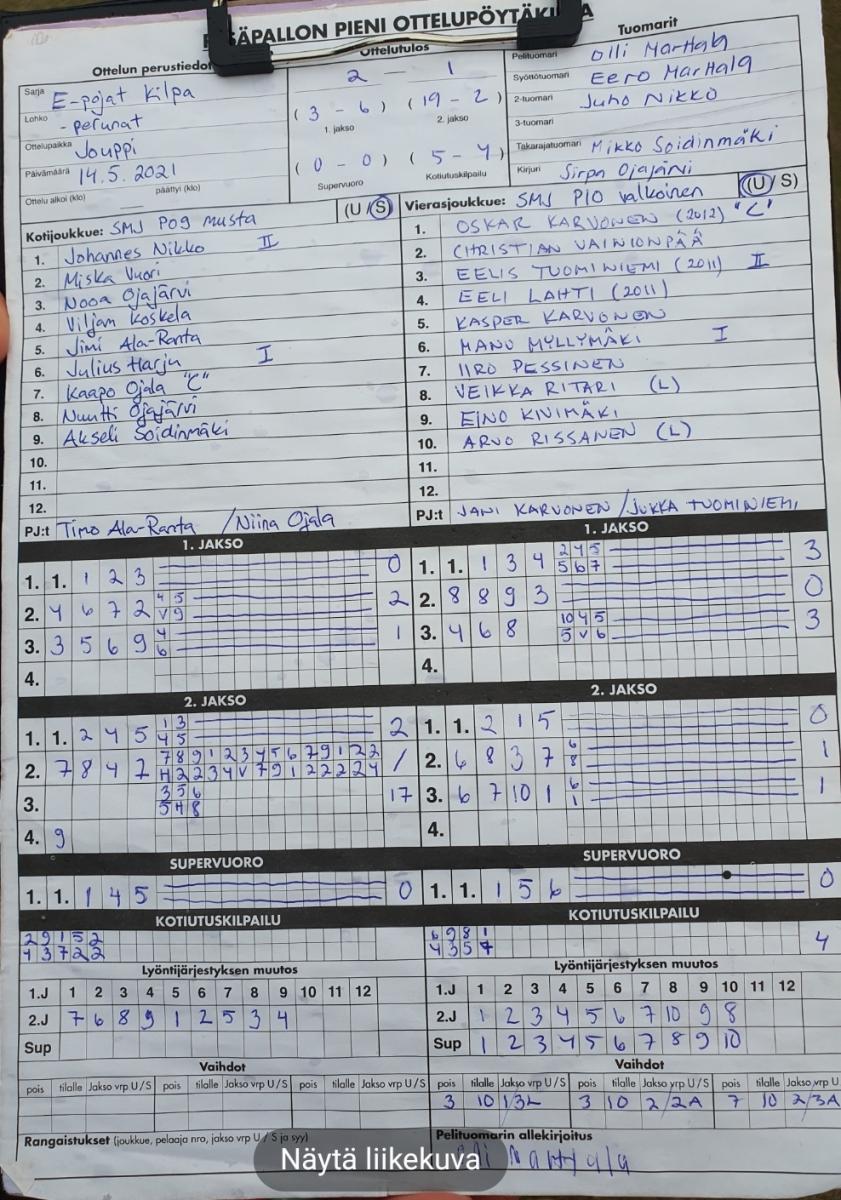 PESÄPALLON PIENI OTTELUPÖYTÄKIRJA
Ottelun perustiedot
Sarja E-pojat Kilpa
Lohko - perunat
Ottelupaikka Jouppi
Päivämäärä 14.5.2021
Ottelu alkoi (klo) päättyi (klo)
Ottelutulos
2 - 1
( 3 - 6 ) ( 19 - 2 )
1. jakso 2. jakso
( 0 - 0 ) ( 5 - 4 )
Supervuoro Kotiutuskilpailu
Tuomarit
Pelituomari Olli Marttala
Syöttötuomari Eero Marttala
2-tuomari Juho Nikko
3-tuomari
Takarajatuomari Mikko Soidinmäki
Kirjuri Sirpa Ojajärvi
Kotijoukkue: SMJ P09 musta (U / S)
1. Johannes Nikko II
2. Miska Vuori
3. Nooa Ojajärvi
4. Viljam Koskela
5. Jimi Ala-Ranta
6. Julius Harju I
7. Kaapo Ojala "C"
8. Nuutti Ojajärvi
9. Akseli Soidinmäki
10.
11.
12.
PJ:t Timo Ala-Ranta / Niina Ojala
Vierasjoukkue: SMJ P10 valkoinen (U / S)
1. OSKAR KARVONEN (2012) "C"
2. CHRISTIAN VAINIONPÄÄ
3. EELIS TUOMINIEMI (2011) II
4. EELI LAHTI (2011)
5. KASPER KARVONEN
6. MANU MYLLYMÄKI I
7. IIRO PESSINEN
8. VEIKKA RITARI (L)
9. EINO KIVIMÄKI
10. ARVO RISSANEN (L)
11.
12.
PJ:t JANI KARVONEN / JUKKA TUOMINIEMI
1. JAKSO
1. 1. 1 2 3 0
2. 4 6 7 2 4 5 2
V 9
3. 3 5 6 9 4 1
6
4.
1. JAKSO
1. 1. 1 3 4 2 4 5 3
5 6 7
2. 8 8 9 3 0
3. 4 6 8 10 4 5 3
5 V 6
4.
2. JAKSO
1. 1. 2 4 5 1 3 2
4 5
2. 7 8 4 2 7 8 9 1 2 3 4 5 6 7 9 1 2 2 /
H 2 2 3 4 V 7 9 1 2 2 2 2 4
3. 3 5 6 17
5 H 8
4. 9
2. JAKSO
1. 1. 2 1 5 0
2. 6 8 3 7 6 1
8
3. 6 7 10 1 6 1
1
4.
SUPERVUORO
1. 1. 1 4 5 0
SUPERVUORO
1. 1. 1 5 6 0
KOTIUTUSKILPAILU
2 9 1 5 2
4 3 7 2 2
KOTIUTUSKILPAILU
6 9 8 1
4 3 5 7
4
Lyöntijärjestyksen muutos
1.J 1 2 3 4 5 6 7 8 9 10 11 12
2.J 7 6 8 9 1 2 5 3 4
Sup
Lyöntijärjestyksen muutos
1.J 1 2 3 4 5 6 7 8 9 10 11 12
2.J 1 2 3 4 5 6 7 10 9 8
Sup 1 2 3 4 5 6 7 8 9 10
Vaihdot
pois tilalle Jakso vrp U / S pois tilalle Jakso vrp U / S pois tilalle Jakso vrp U / S
Vaihdot
pois tilalle Jakso vrp U / S pois tilalle Jakso vrp U / S pois tilalle Jakso vrp U
3 10 1/3L 3 10 2/2A 7 10 2/3A
Rangaistukset (joukkue, pelaaja nro, jakso vrp U / S ja syy)
Pelituomarin allekirjoitus
Näytä liikekuva